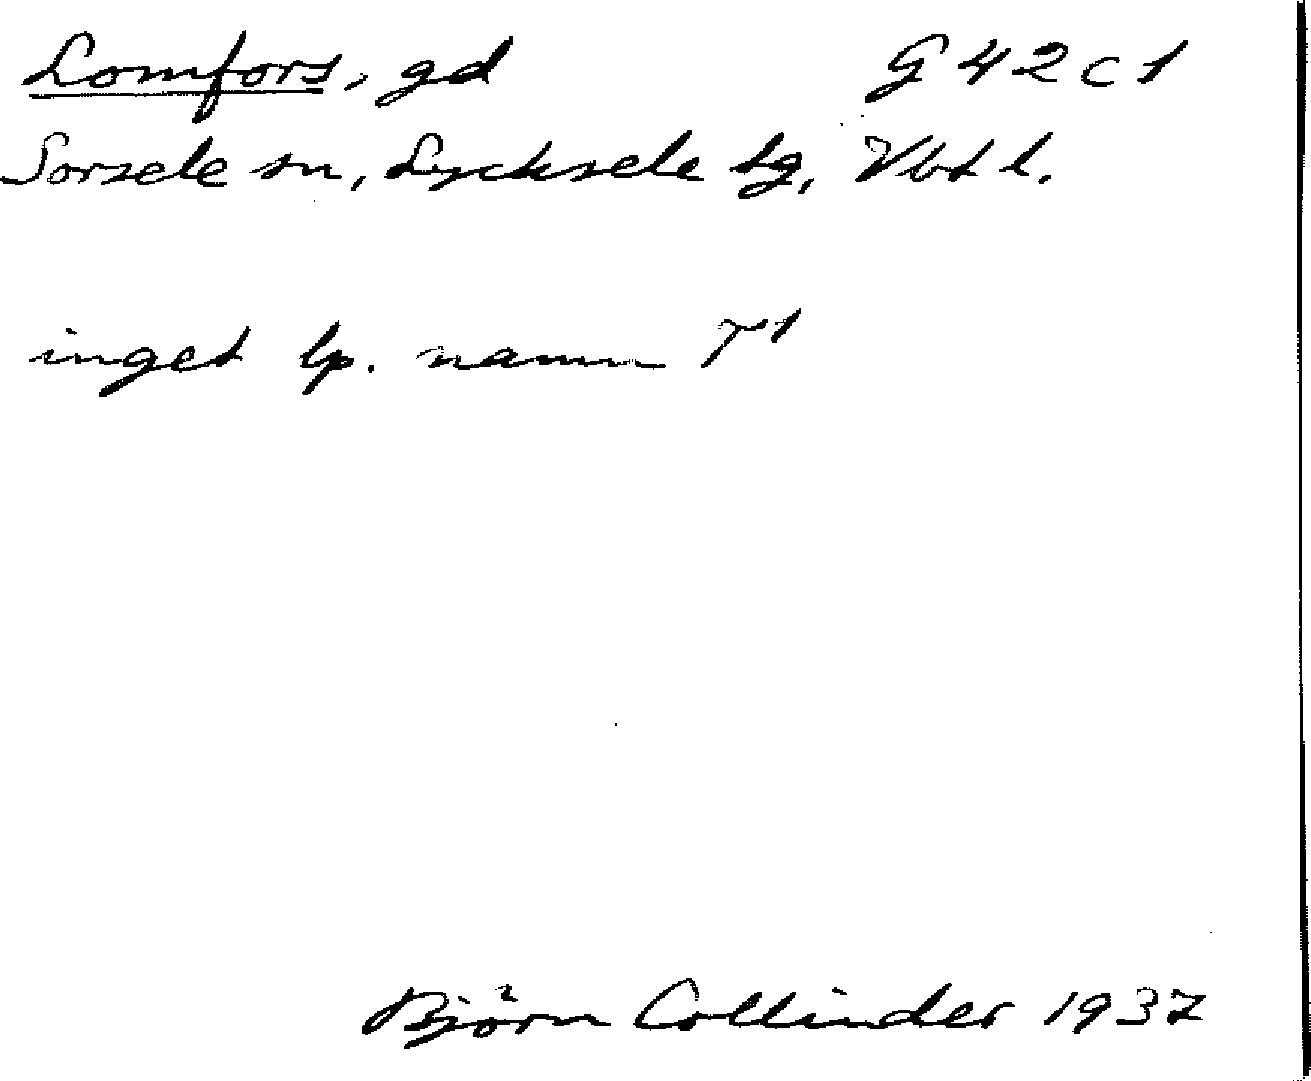 Lomfors, gd G 42 c 1
Sorsele sn, Lycksele tg, Vbtl.
inget lp. namn T1
Björn Collinder 1937